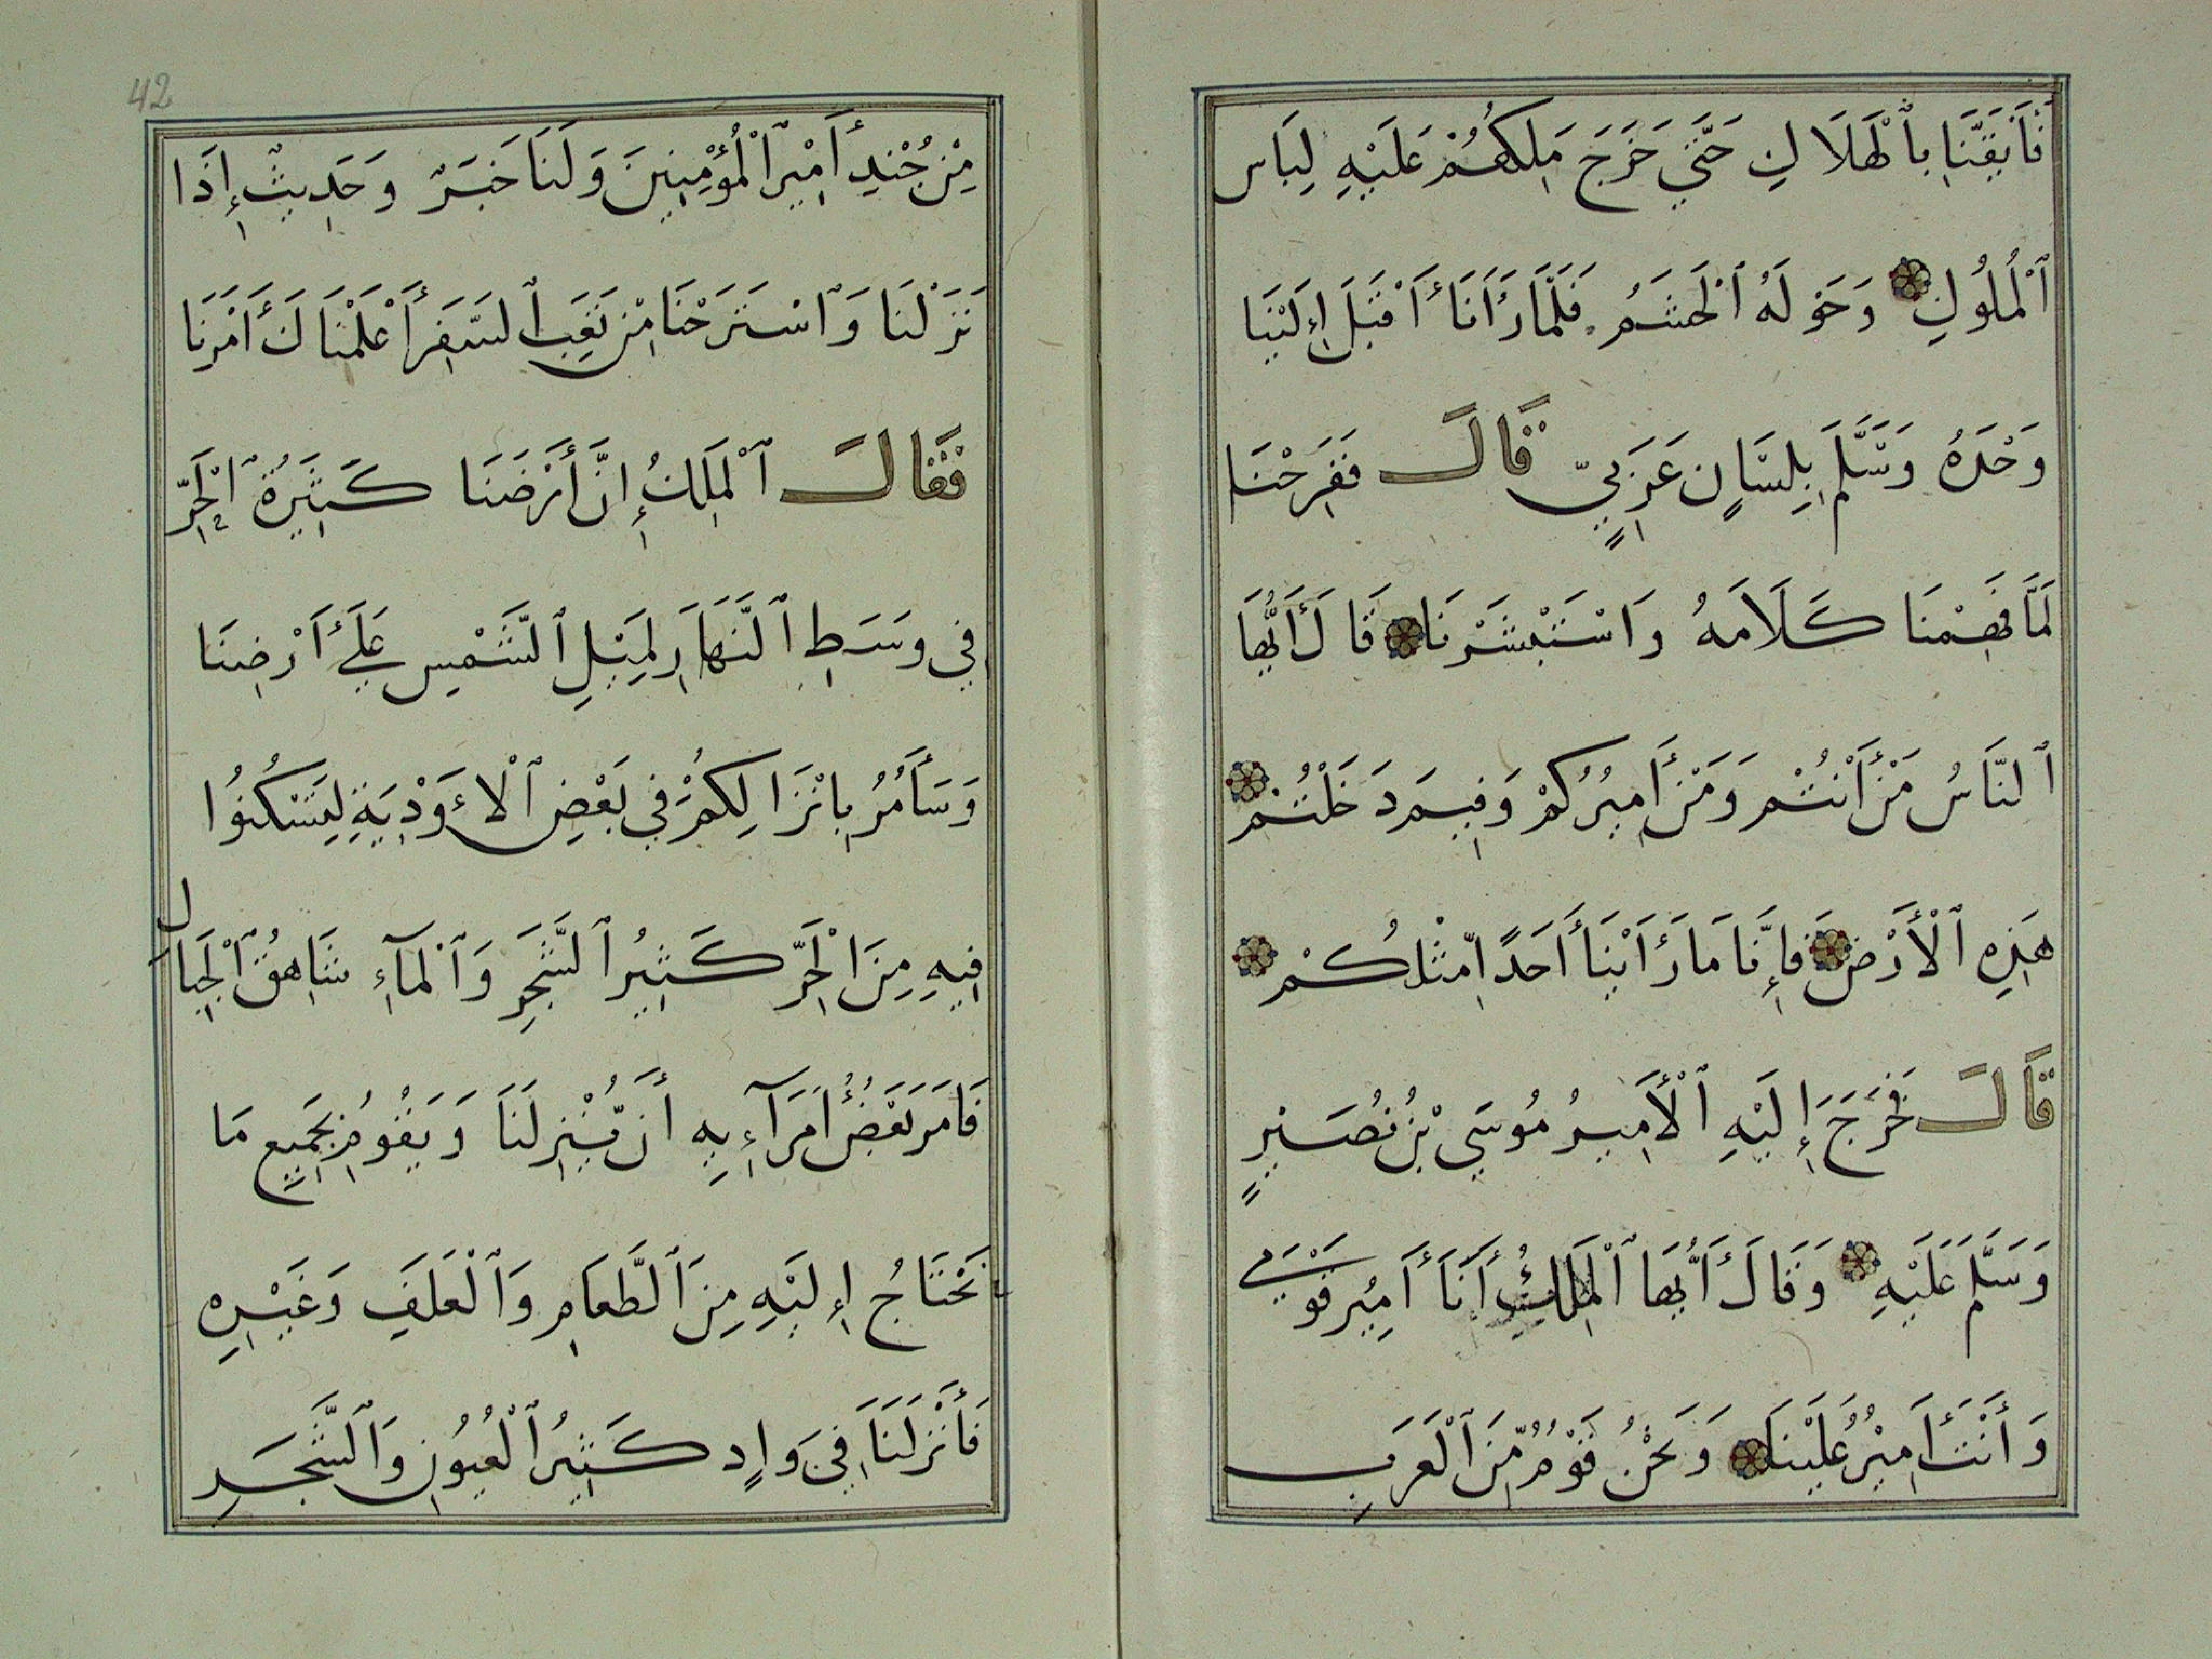 فَأَيْقَنَّا بِٱلْهَلَاكِ حَتَّىٰ خَرَجَ مَلِكُهُمْ عَلَيْهِ لِبَاس
ٱلْمُلُوكِ وَحَوْلَهُ ٱلْحَشَمُ فَلَمَّا رَأَنَا أَقْبَلَ إِلَيْنَا
وَحْدَهُ وَسَّلَّمَ بِلِسَانٍ عَرَبِيٍّ قَالَ فَفَرِحْنَا
لَمَّا فَهِمْنَا كَلَامَهُ وَاسْتَبْشَرْنَا قَالَ أَيُّهَا
ٱلنَّاسُ مَنْ أَنْتُمْ وَمَنْ أَمِيرُكُمْ وَفِيمَ دَخَلْتُمْ
هَذِهِ ٱلْأَرْضَ فَإِنَّا مَا رَأَيْنَا أَحَدًا مِّثْلُكُمْ
قَالَ فَخَرَجَ إِلَيْهِ ٱلْأَمِيرُ مُوسَى بْنُ نُصَيْرٍ
وَسَلَّمَ عَلَيْهِ وَقَالَ أَيُّهَا ٱلْمَلِكُ أَنَا أَمِيرُ قَوْمِي
وَأَنْتَ أَمِيرُ عَلَيْنَا وَنَحْنُ قَوْمٌ مِّنَ ٱلْعَرَبِ
42
مِنْ جُنْدِ أَمِيرِ ٱلْمُؤْمِنِينَ وَلَنَا خَبَرٌ وَحَدِيثٌ إِذَا
نَزَلْنَا وَٱسْتَرَحْنَا مِنْ تَعَبِ ٱلسَّفَرِ أَعْلَمْنَاكَ أَمْرَنَا
فَقَالَ ٱلْمَلِكُ إِنَّ أَرْضَنَا كَثِيرَةُ ٱلْحَرِّ
فِي وَسَطِ ٱلنَّهَارِ لِمَيْلِ ٱلشَّمْسِ عَلَى أَرْضِنَا
وَسَأَمُرُ بِانْزَالِكُمْ فِي بَعْضِ ٱلْأَوْدِيَةِ لِتَسْكُنُوا
فِيهِ مِنَ الْحَرِّ كَثِيرُ ٱلشَّجَرِ وَٱلْمَآءِ شَاهِقُ ٱلْجِبَال
فَامَرَ بَعْضُ أُمَرَآءِيهِ أَن يُّنْزِلَنَا وَيَقُومُ بِجَمِيعِ مَا
نَحْتَاجُ إِلَيْهِ مِنَ ٱلطَّعَامِ وَٱلْعَلَفِ وَغَيْرِهِ
فَأَنْزَلَنَا فِي وَادٍ كَثِيرُ ٱلْعُيُونِ وَٱلشَّجَرِ